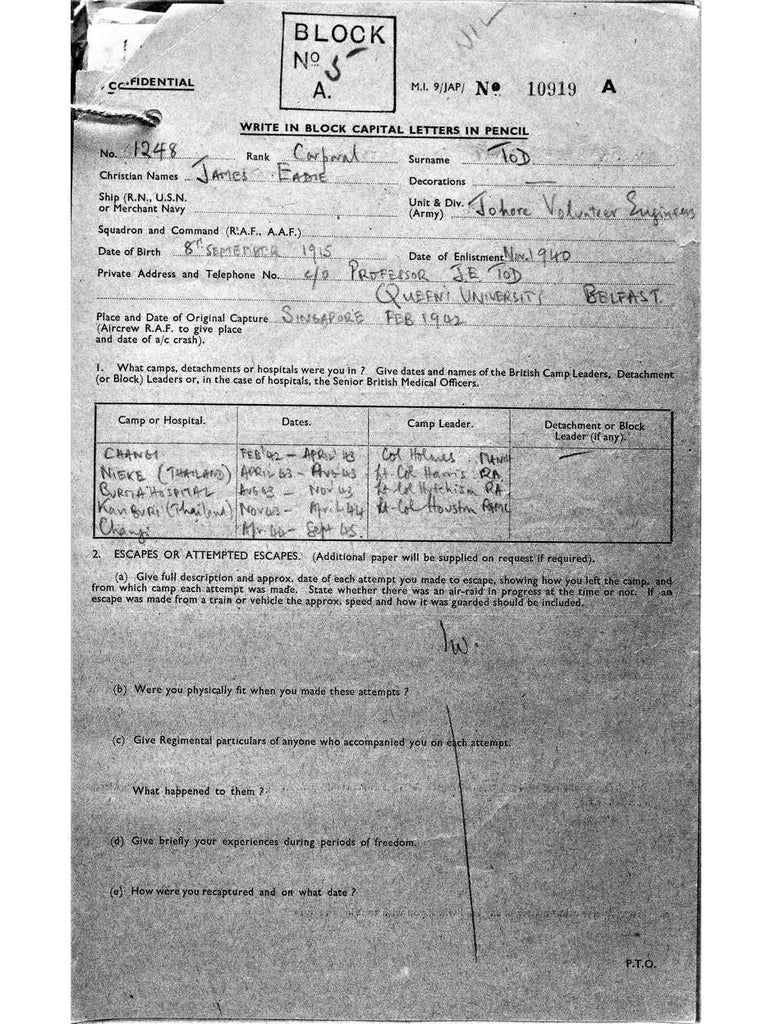 NIL
BLOCK
Nº 5
A.
FIDENTIAL
M.I. 9/JAP/ Nº 10919 A
WRITE IN BLOCK CAPITAL LETTERS IN PENCIL
No. 1248 Rank Corporal Surname TOD
Christian Names JAMES EADIE Decorations —
Ship (R.N., U.S.N. or Merchant Navy
Unit & Div. (Army) Johore Volunteer Engineers
Squadron and Command (R.A.F., A.A.F.)
Date of Birth 8th SEPTEMBER 1915 Date of Enlistment Nov. 1940
Private Address and Telephone No. c/o PROFESSOR J.E TOD
QUEENS UNIVERSITY BELFAST.
Place and Date of Original Capture SINGAPORE FEB 1942
(Aircrew R.A.F. to give place
and date of a/c crash).
1. What camps, detachments or hospitals were you in ? Give dates and names of the British Camp Leaders, Detachment
(or Block) Leaders or, in the case of hospitals, the Senior British Medical Officers.
Camp or Hospital. Dates. Camp Leader. Detachment or Block Leader (if any).
CHANGI FEB '42 — APRIL 43 Col Holmes —
NIEKE (THAILAND) APRIL 43 — AUG 43 Lt. Col Harris RA
BURMA HOSPITAL AUG 43 — NOV 43 Lt Col Hutchison RA
KANBURI (Thailand) NOV 43 — April 44 Lt-Col Houston RAMC
Changi Apr 44 — Sept 45.
2. ESCAPES OR ATTEMPTED ESCAPES. (Additional paper will be supplied on request if required).
(a) Give full description and approx. date of each attempt you made to escape, showing how you left the camp, and
from which camp each attempt was made. State whether there was an air-raid in progress at the time or not. If an
escape was made from a train or vehicle the approx. speed and how it was guarded should be included.
(b) Were you physically fit when you made these attempts ?
(c) Give Regimental particulars of anyone who accompanied you on each attempt.
What happened to them ?
(d) Give briefly your experiences during periods of freedom.
(e) How were you recaptured and on what date ?
P.T.O.